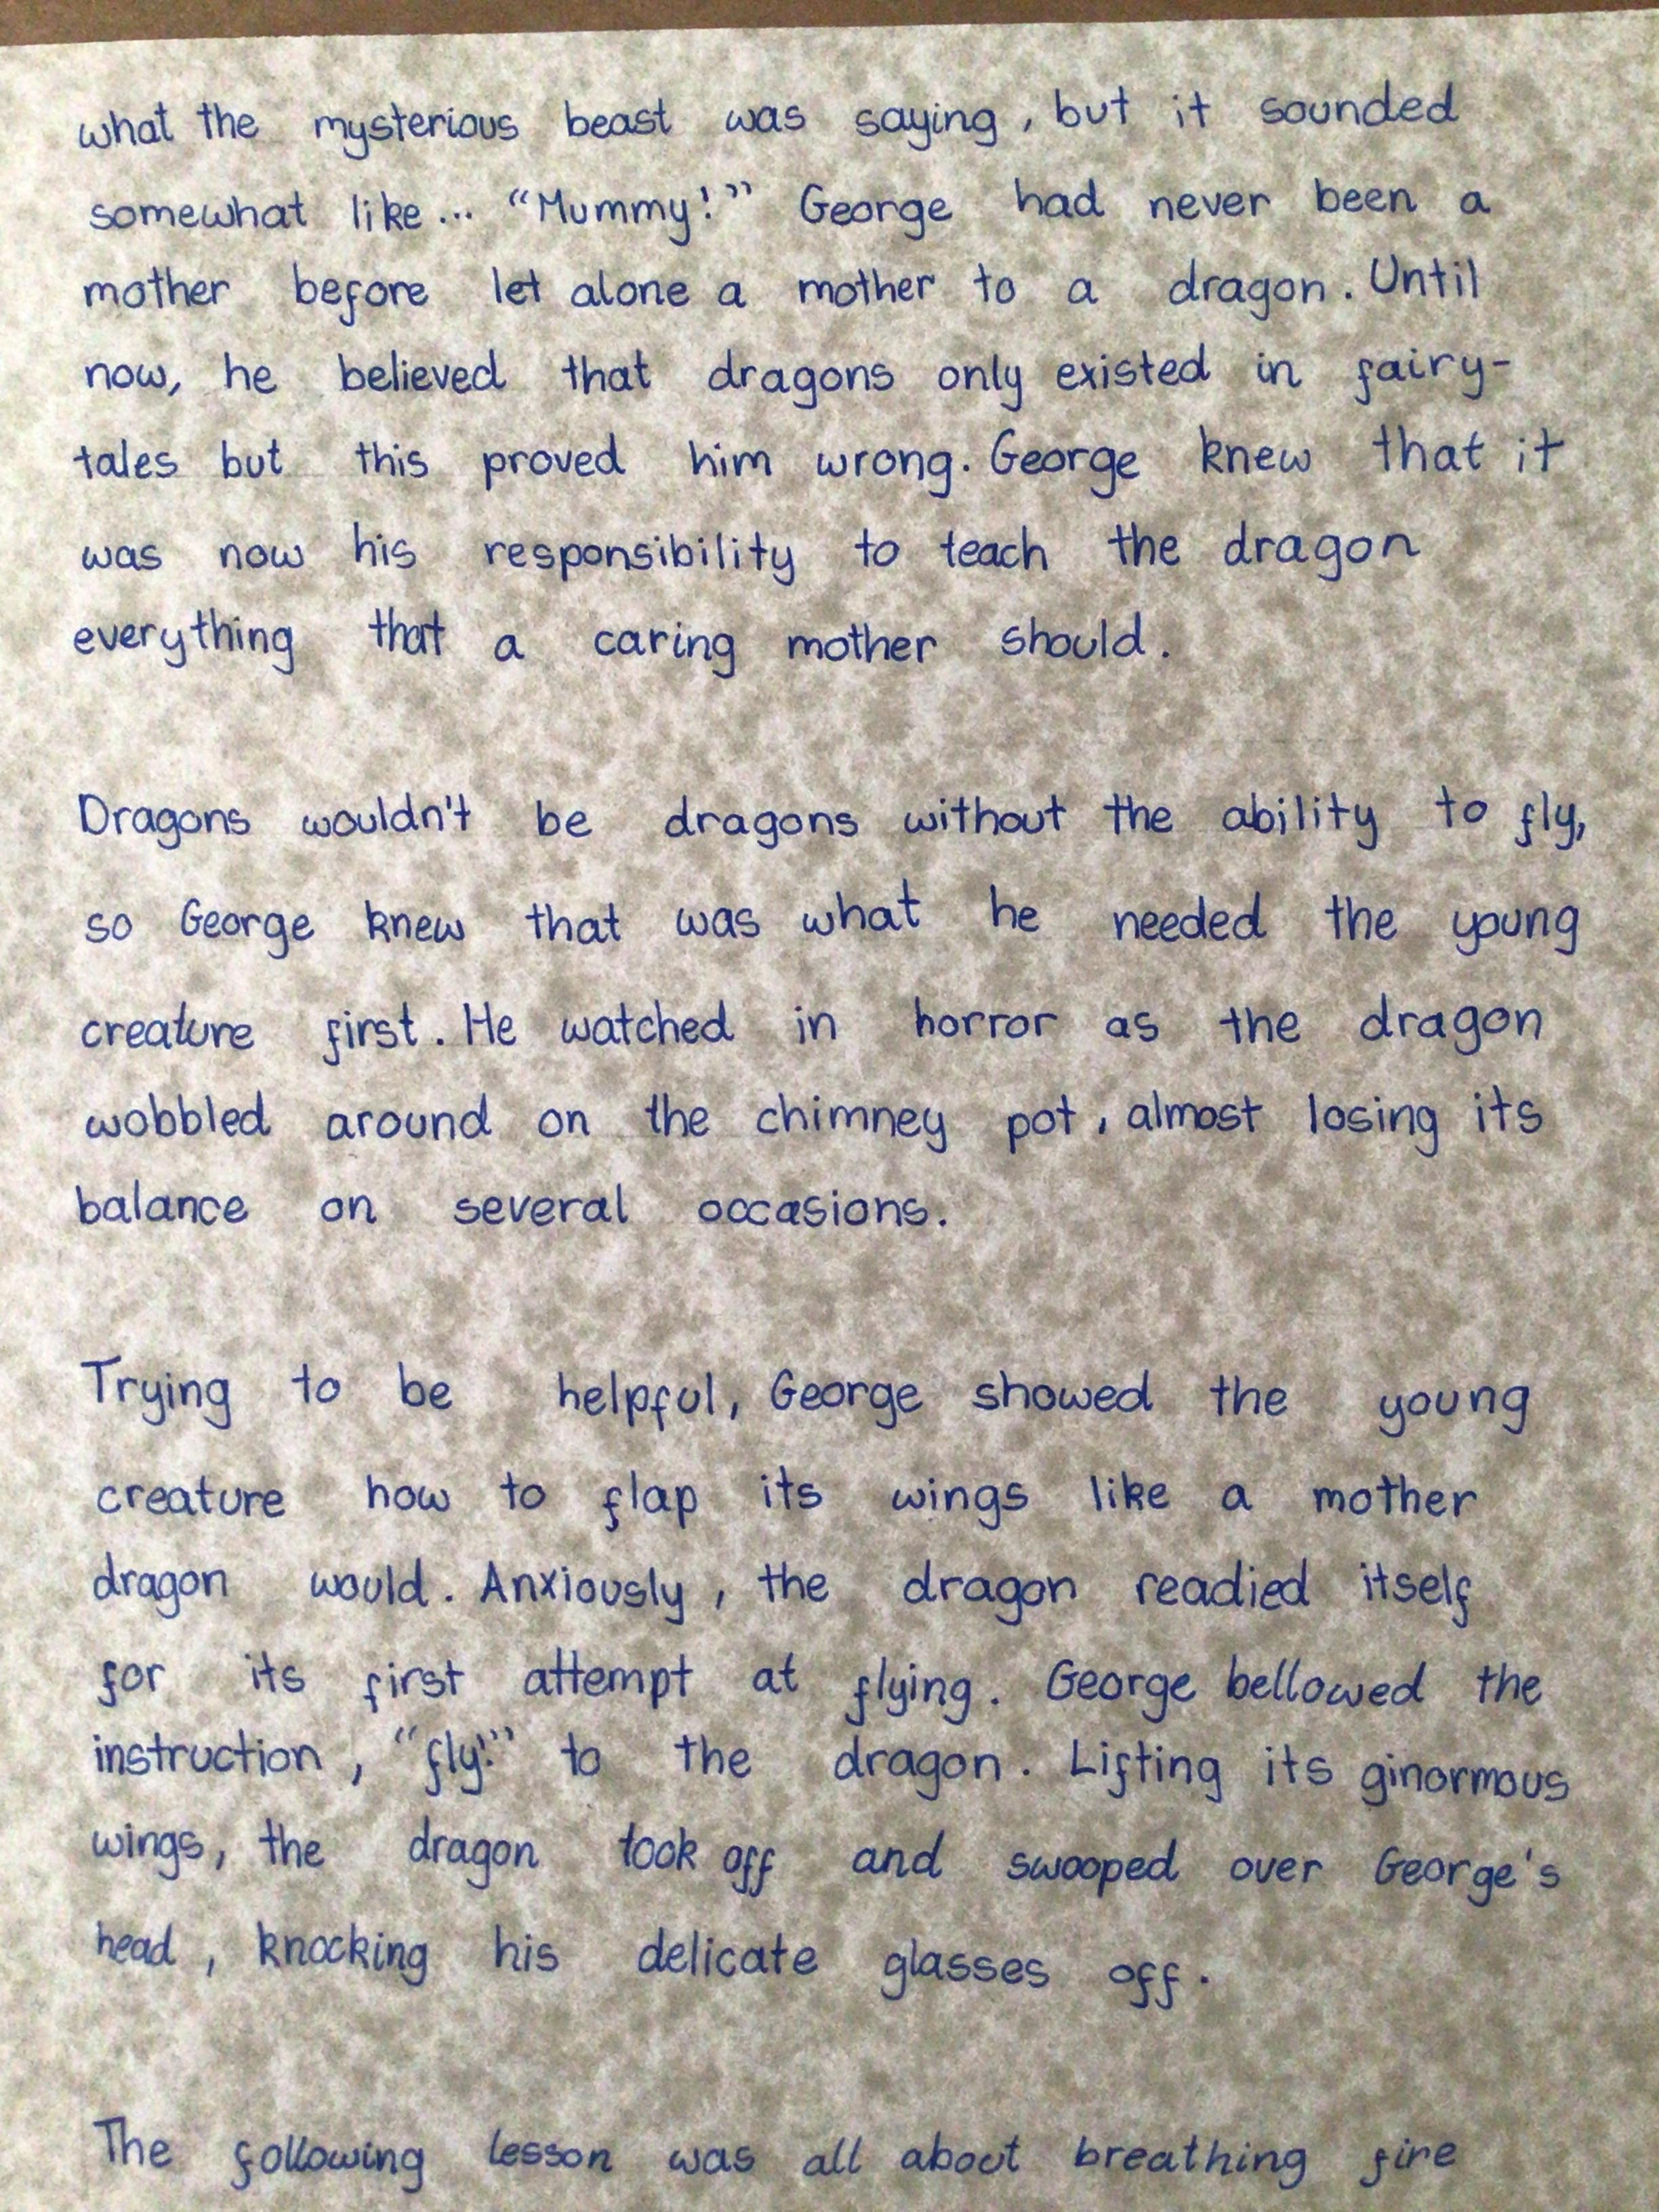 what the mysterious beast was saying, but it sounded
somewhat like... “Mummy!” George had never been a
mother before let alone a mother to a dragon. Until
now, he believed that dragons only existed in fairy-
tales but this proved him wrong. George knew that it
was now his responsibility to teach the dragon
everything that a caring mother should.
Dragons wouldn't be dragons without the ability to fly,
so George knew that was what he needed the young
creature first. He watched in horror as the dragon
wobbled around on the chimney pot, almost losing its
balance on several occasions.
Trying to be helpful, George showed the young
creature how to flap its wings like a mother
dragon would. Anxiously, the dragon readied itself
for its first attempt at flying. George bellowed the
instruction, “fly!” to the dragon. Lifting its ginormous
wings, the dragon took off and swooped over George's
head, knocking his delicate glasses off.
The following lesson was all about breathing fire